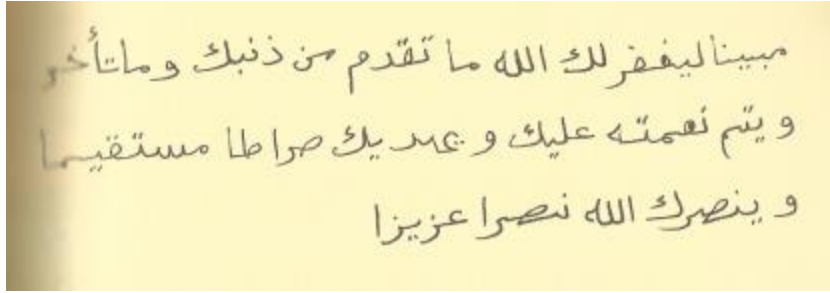 مبينا ليغفر لك الله ما تقدم من ذنبك وما تأخر
ويتم نعمته عليك ويهديك صراطا مستقيما
وينصرك الله نصرا عزيزا